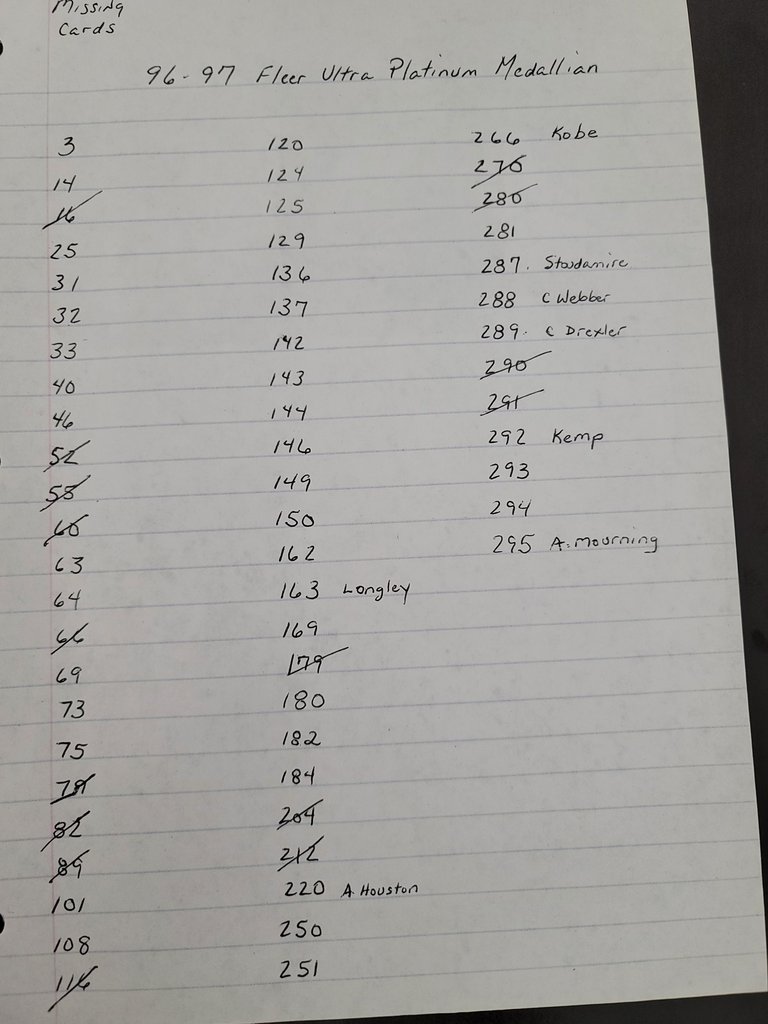 Missing
Cards
96-97 Fleer Ultra Platinum Medallian
3
14
16
25
31
32
33
40
46
52
58
60
63
64
66
69
73
75
79
82
89
101
108
116
120
124
125
129
136
137
142
143
144
146
149
150
162
163 Longley
169
179
180
182
184
204
212
220 A. Houston
250
251
266 Kobe
270
280
281
287. Stoudamire
288 C Webber
289. C Drexler
290
291
292 Kemp
293
294
295 A. Mourning